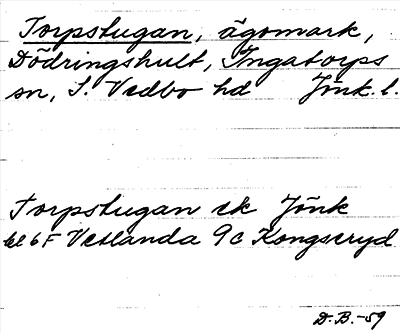 Torpstugan, ägomark,
Dödringshult, Ingatorps
sn, S. Vedbo hd Jönk. l.
Torpstugan ek Jönk
bl 6F Vetlanda 9c Kongseryd
D.B.-59